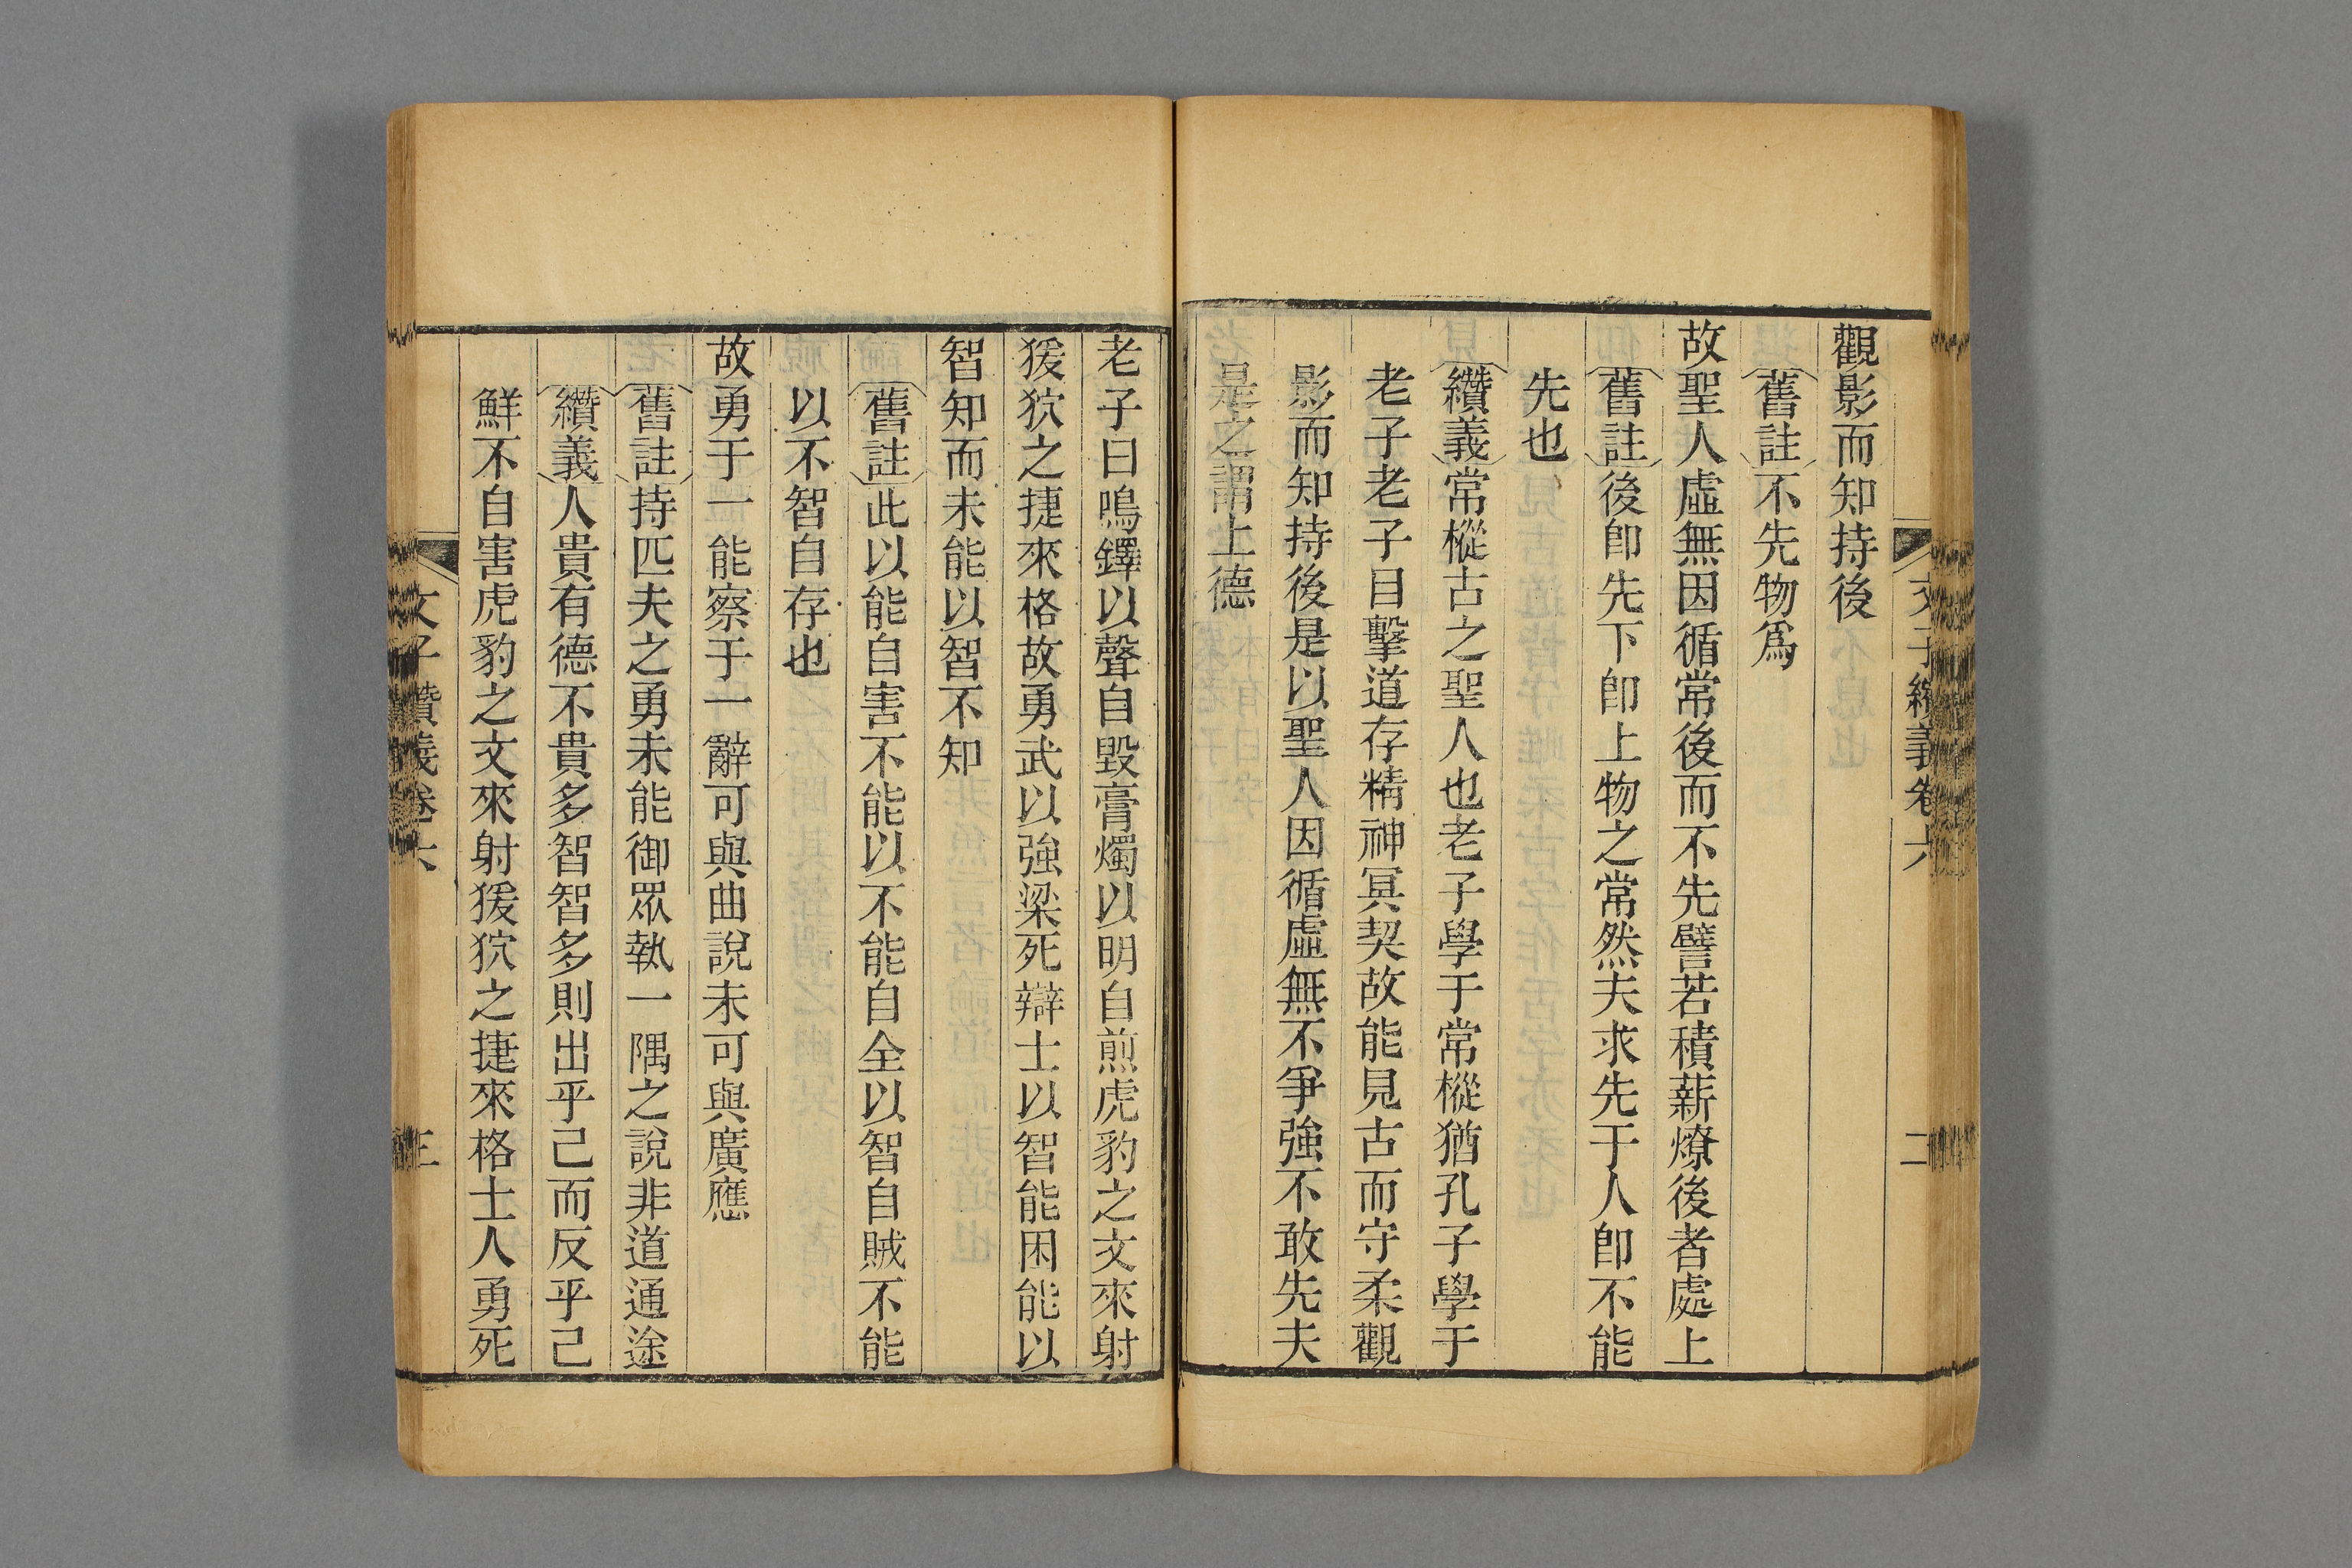 文子纘義卷六 二
觀影而知持後
舊註不先物爲
故聖人虛無因循常後而不先譬若積薪燎後者處上
舊註後卽先下卽上物之常然夫求先于人卽不能
先也
纘義常樅古之聖人也老子學于常樅猶孔子學于
老子老子目擊道存精神冥契故能見古而守柔觀
影而知持後是以聖人因循虛無不爭強不敢先夫
是之謂上德
老子曰鳴鐸以聲自毀膏燭以明自煎虎豹之文來射
猨狖之捷來格故勇武以強梁死辯士以智能困能以
智知而未能以智不知
舊註此以能自害不能以不能自全以智自賊不能
以不智自存也
故勇于一能察于一辭可與曲說未可與廣應
舊註持匹夫之勇未能御眾執一隅之說非道通途
纘義人貴有德不貴多智智多則出乎己而反乎己
鮮不自害虎豹之文來射猨狖之捷來格士人勇死
文子纘義卷六 三